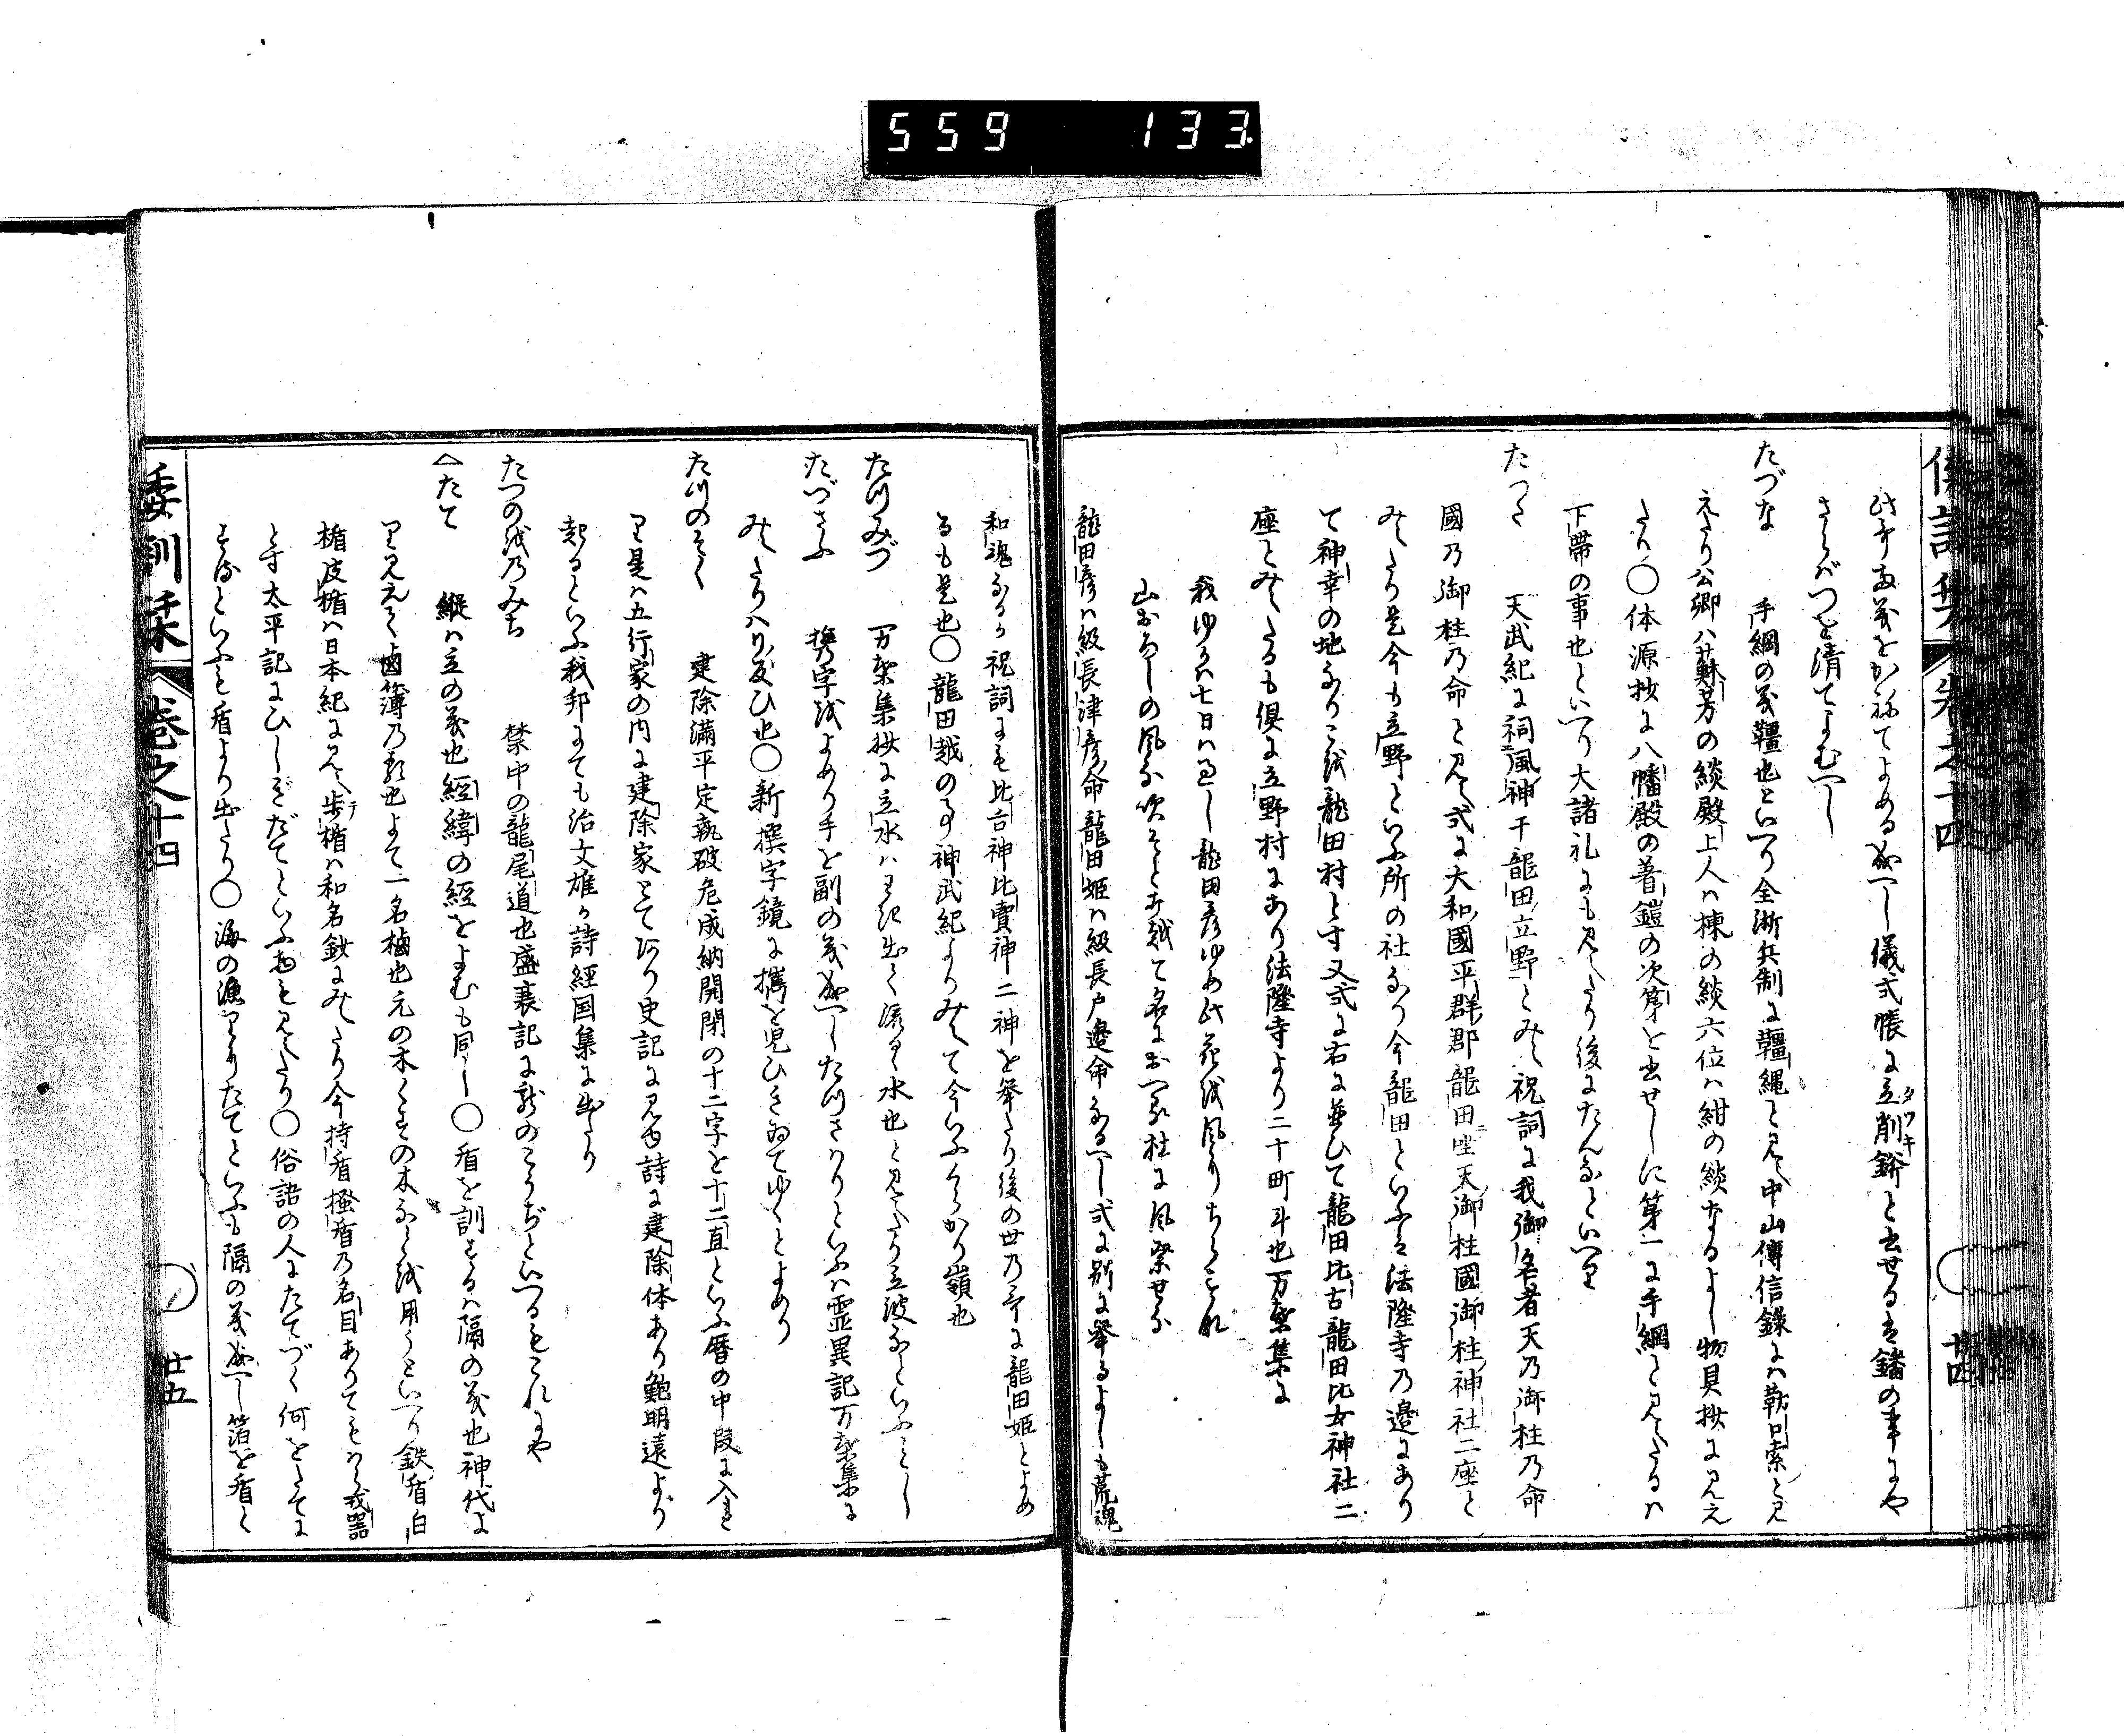 559 133.
倭訓栞 巻之十四 廿四
此哥両義をかねてよめる成へし儀式帳に立削鉼と出せるは鐇の事にや
タツキ
さらばつを清てよむへし
たづな 手綱の義韁也といへり全浙兵制に韁縄と見え中山傳信録には勒口索と見
えたり公卿ハ蘇芳の緂殿上人は棟の緂六位は紺の緂なるよし物具抄に見え
たり○体源抄に八幡殿の着鎧の次第を出せしに第一に手綱と見えたるは
下帯の事也といへり大諸礼にも見えたり後にたんなといへり
たつた 天武紀に祠風神于龍田立野とみえ祝詞に我御名者天乃御柱乃命
國乃御柱乃命と見え式に大和國平群郡龍田坐天御柱國御柱神社二座と
みえたり是今も立野といふ所の社なり今龍田といふは法隆寺乃邊にあり
て神幸の地なりこを龍田村とす又式に右に並ひて龍田比古龍田比女神社二
座とみえたるも倶に立野村にあり法隆寺より二十町斗也万葉集に
我ゆきは七日は過し龍田彦ゆめ此花を風にちらすな
山おろしの風な吹そとあ越て名におへる杜に風祭せな
龍田彦は級長津彦命龍田姫は級長戸邊命なるへし式に別に挙るよしも荒魂
和魂なるか祝詞にも比古神比賣神二神を挙たり後の世乃哥に龍田姫とよめ
るも是也○龍田越の事神武紀よりみえて今いふくらかり嶺也
たつみづ 万葉集抄に立水はわき出て流るゝ水也と見えたり立波なといふことし
たづさふ 携字をよめり手を副の義成へしたつさはりといふは霊異記万葉集に
みえたりハリ反ひ也○新撰字鏡に攜を児ひきゐてゆくとよめり
たつのそく 建除満平定執破危成納開閉の十二字を十二直といふ暦の中段に入た
り是は五行家の内に建除家とてあり史記に見ゆ詩に建除体あり鮑明遠より
起るといふ我邦にても治文雄か詩経国集に出たり
たつの越乃みち 禁中の龍尾道也盛衰記に龍のこうぢといへるもこれにや
△たて 縦は立の義也経緯の経をよむも同し○盾を訓するは隔の義也神代よ
り見えて鹵簿乃類也よて一名櫓也元の木くすの木なとを用うといへり鉄盾白
楯皮楯は日本紀に見え歩楯は和名鈔にみえたり今持盾掻盾乃名目ありてもはら戎器
テ
とす太平記にひしぎだてといふ物も見えたり○俗語の人にたてづく何をたてに
するといふも盾より出たり○海の漁にとりたてといふも隔の義成へし箔を盾と
倭訓栞 巻之十四 廿五